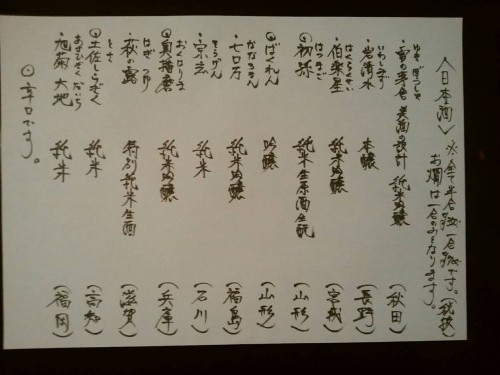 〈日本酒〉 ※全て半合 一合 です。(税抜)
お燗は一合のみとなります。
・雪の茅舎 美酒の設計 純米吟醸 (秋田)
いわしみず
・岩清水 本醸 (長野)
はくらくせい
・伯楽星 純米吟醸 (宮城)
はつまご
◎初孫 純米生原酒生酛 (山形)
◎ばくれん 吟醸 (山形)
ななろまん
・七ロ万 純米吟醸 (福島)
そうげん
・宗玄 純米 (石川)
おくはりま
◎奥播磨 純米吟醸 (兵庫)
はぎ つゆ
・萩の露 特別純米生酒 (滋賀)
とさ
◎土佐しらぎく 純米 (高知)
あさひぎく だいち
・旭菊 大地 純米 (福岡)
◎辛口です。